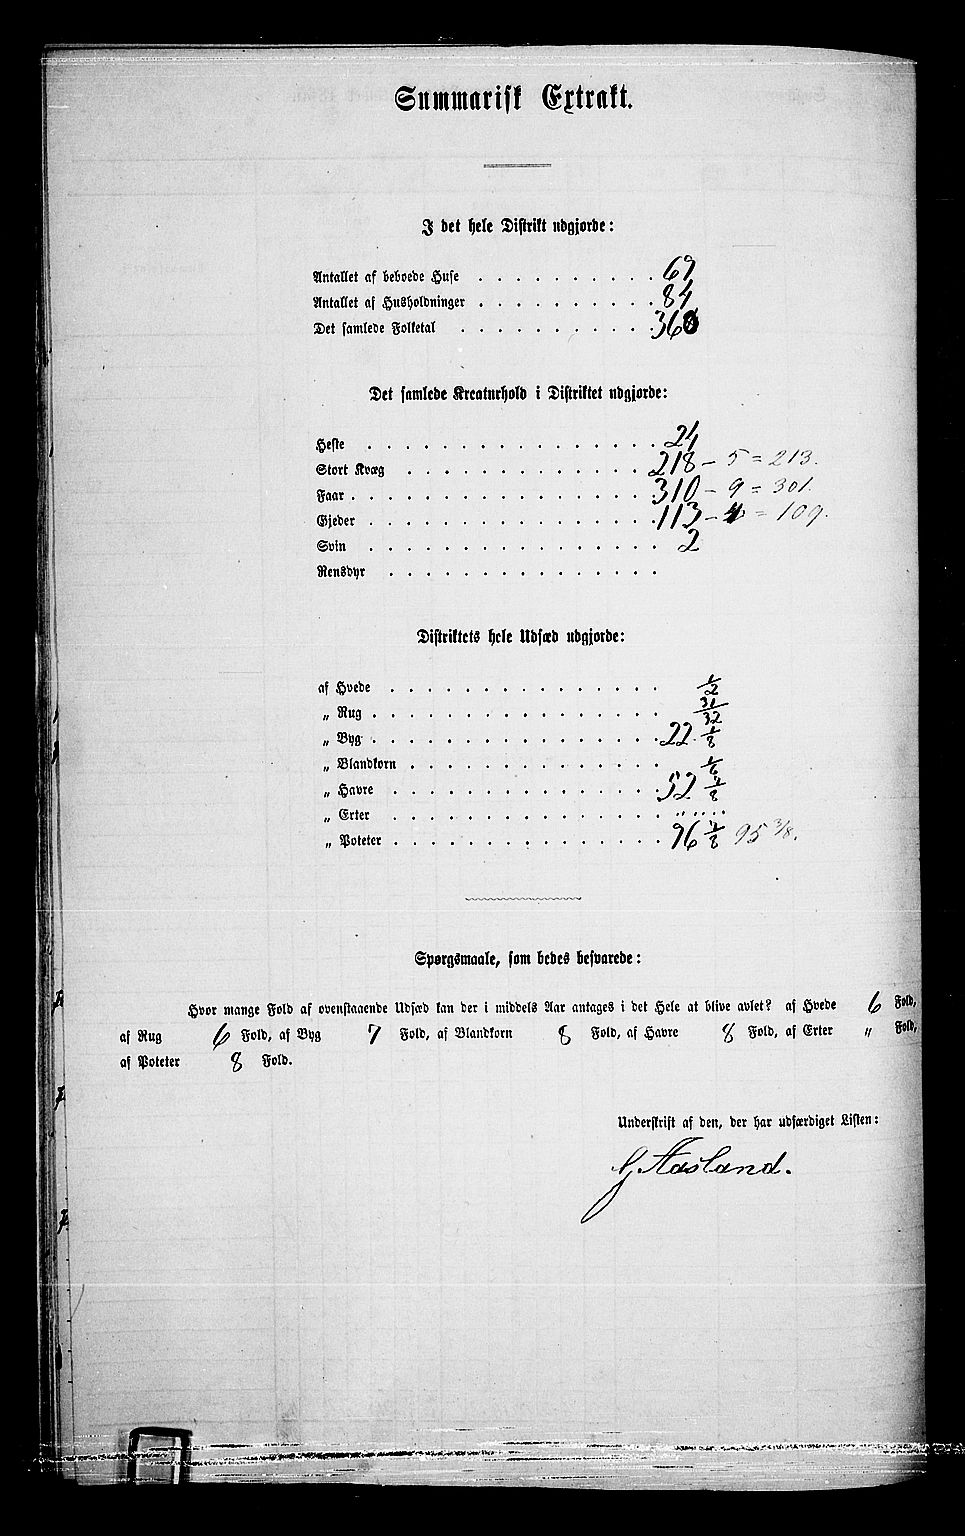 Summarisk Extrakt.
I det hele Distrikt udgjorde:
Antallet af beboede Huse . . . . . . . . . . 69
Antallet af Husholdninger . . . . . . . . . . 84
Det samlede Folketal . . . . . . . . . . . 368
Det samlede Kreaturhold i Distriktet udgjorde:
Heste . . . . . . . . . . . . . . . . 24
Stort Kvæg . . . . . . . . . . . . . . 218 – 5 = 213.
Faar . . . . . . . . . . . . . . . . . 310 – 9 = 301.
Gjeder . . . . . . . . . . . . . . . . 113 – 4 = 109.
Svin . . . . . . . . . . . . . . . . 2
Rensdyr . . . . . . . . . . . . . . .
Distriktets hele Udsæd udgjorde:
af Hvede . . . . . . . . . . . . . . . 1/2
„ Rug . . . . . . . . . . . . . . . . 31/32
„ Byg . . . . . . . . . . . . . . . . 22 1/8
„ Blandkorn . . . . . . . . . . . . . . 1/6
„ Havre . . . . . . . . . . . . . . . 52 7/8
„ Erter . . . . . . . . . . . . . . . „ „
„ Poteter . . . . . . . . . . . . . . . 96 7/8 95 3/8.
Spørgsmaale, som bedes besvarede:
Hvor mange Fold af ovenstaaende Udsæd kan der i middels Aar antages i det Hele at blive avlet? af Hvede 6 Fold,
af Rug 6 Fold, af Byg 7 Fold, af Blandkorn 8 Fold, af Havre 8 Fold, af Erter „ Fold,
af Poteter 8 Fold.
Underskrift af den, der har udfærdiget Listen:
G Aasland.